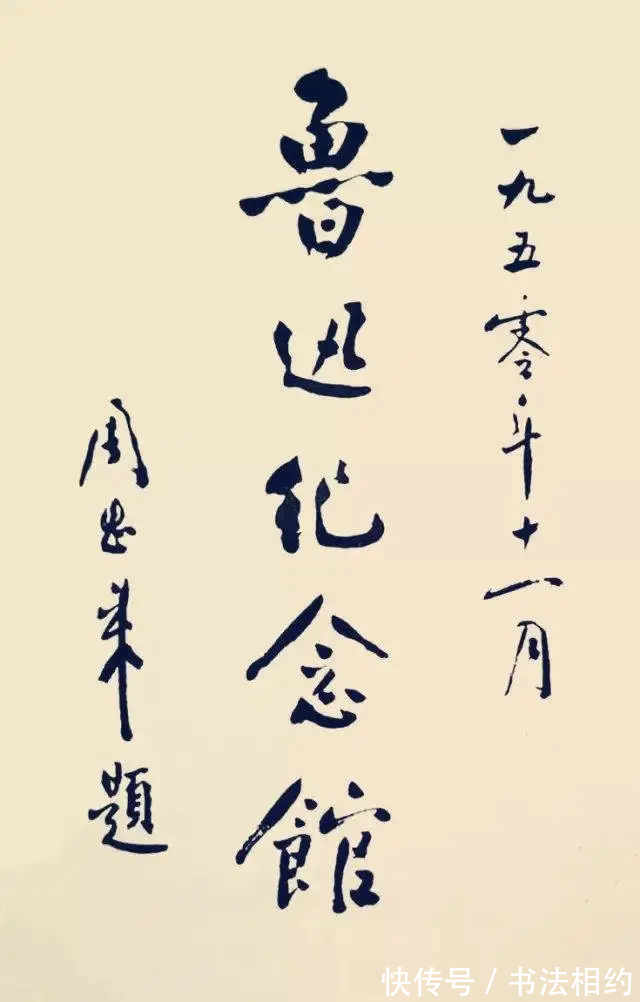 一九五零年十一月
魯迅纪念館
周恩来題
快传号 / 书法相约